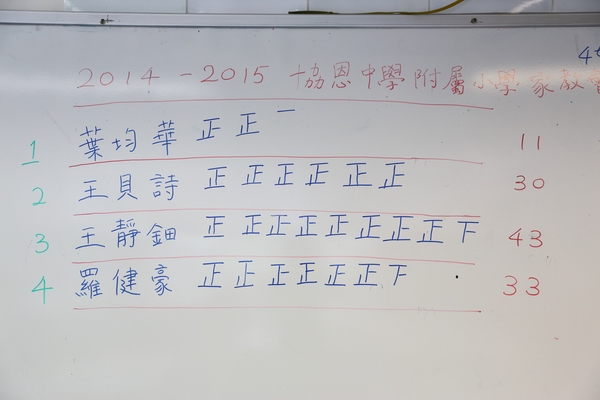 4t
2014 - 2015 協恩中學附屬小學家教會
1 葉均華 正正一 11
2 王貝詩 正正正正正正 30
3 王靜鈿 正正正正正正正正下 43
4 羅健豪 正正正正正正下 33